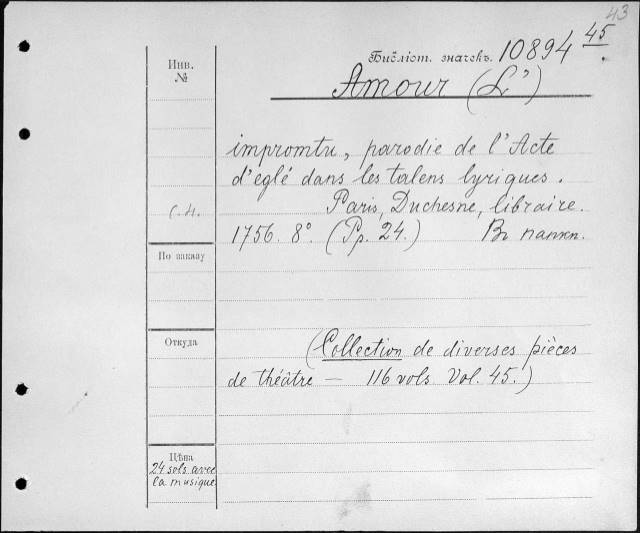 43
Библіот. значекъ. 10894 45
Инв.
№
Amour (L')
impromtu, parodie de l'Acte
d'eglé dans les talens lyriques.
Paris, Duchesne, libraire.
1756. 8°. (Pp. 24.) Въ папкѣ.
По заказу
Откуда
(Collection de diverses pièces
de théâtre — 116 vols Vol. 45.)
Цѣна
24 sols avec
la musique